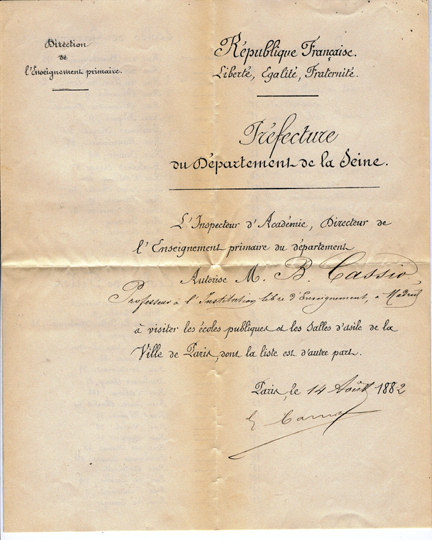 Direction
de
l'Enseignement primaire.
République Française.
Liberté, Egalité, Fraternité.
Préfecture
du Département de la Seine.
L'Inspecteur d'Académie, Directeur de
l'Enseignement primaire du département
Autorise M. B. Cassio
Professeur à l'Institution libre d'Enseignement, à Madrid
à visiter les écoles publiques et les salles d'asile de la
Ville de Paris dont la liste est d'autre part.
Paris, le 14 Août 1882